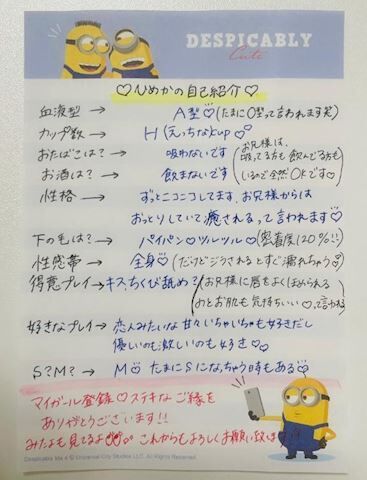 DESPICABLY
Cute
♡ひめかの自己紹介♡
血液型 → A型♡(たまにO型って言われます笑)
カップ数 → H(えっちな)cup♡
おたばこは? → 吸わないです
お酒は? → 飲まないです
(お兄様は、吸ってる方も飲んでる方もいるので全然OKです♡)
性格 → ずっとニコニコしてます。お兄様からは
おっとりしていて癒されるって言われます♡
下の毛は? → パイパン♡ツルツル♡(密着度120%!!)
性感帯 → 全身♡(だけどジラされるとすぐ濡れちゃう♡)
得意プレイ → キス、ちくび舐め?(お兄様に唇をよくほめられる
お肌も気持ちいい♡って言われる)
好きなプレイ → 恋人みたいな甘々いちゃいちゃも好きだし
優しいのも激しいのも好き♡♡
S?M? → M♡たまにSになっちゃう時もある♡
マイガール登録♡ステキなご縁を
ありがとうございます!!
みたよも見てるよ これからもよろしくお願い致します!!
Despicable Me 4 © Universal City Studios LLC. All Rights Reserved.